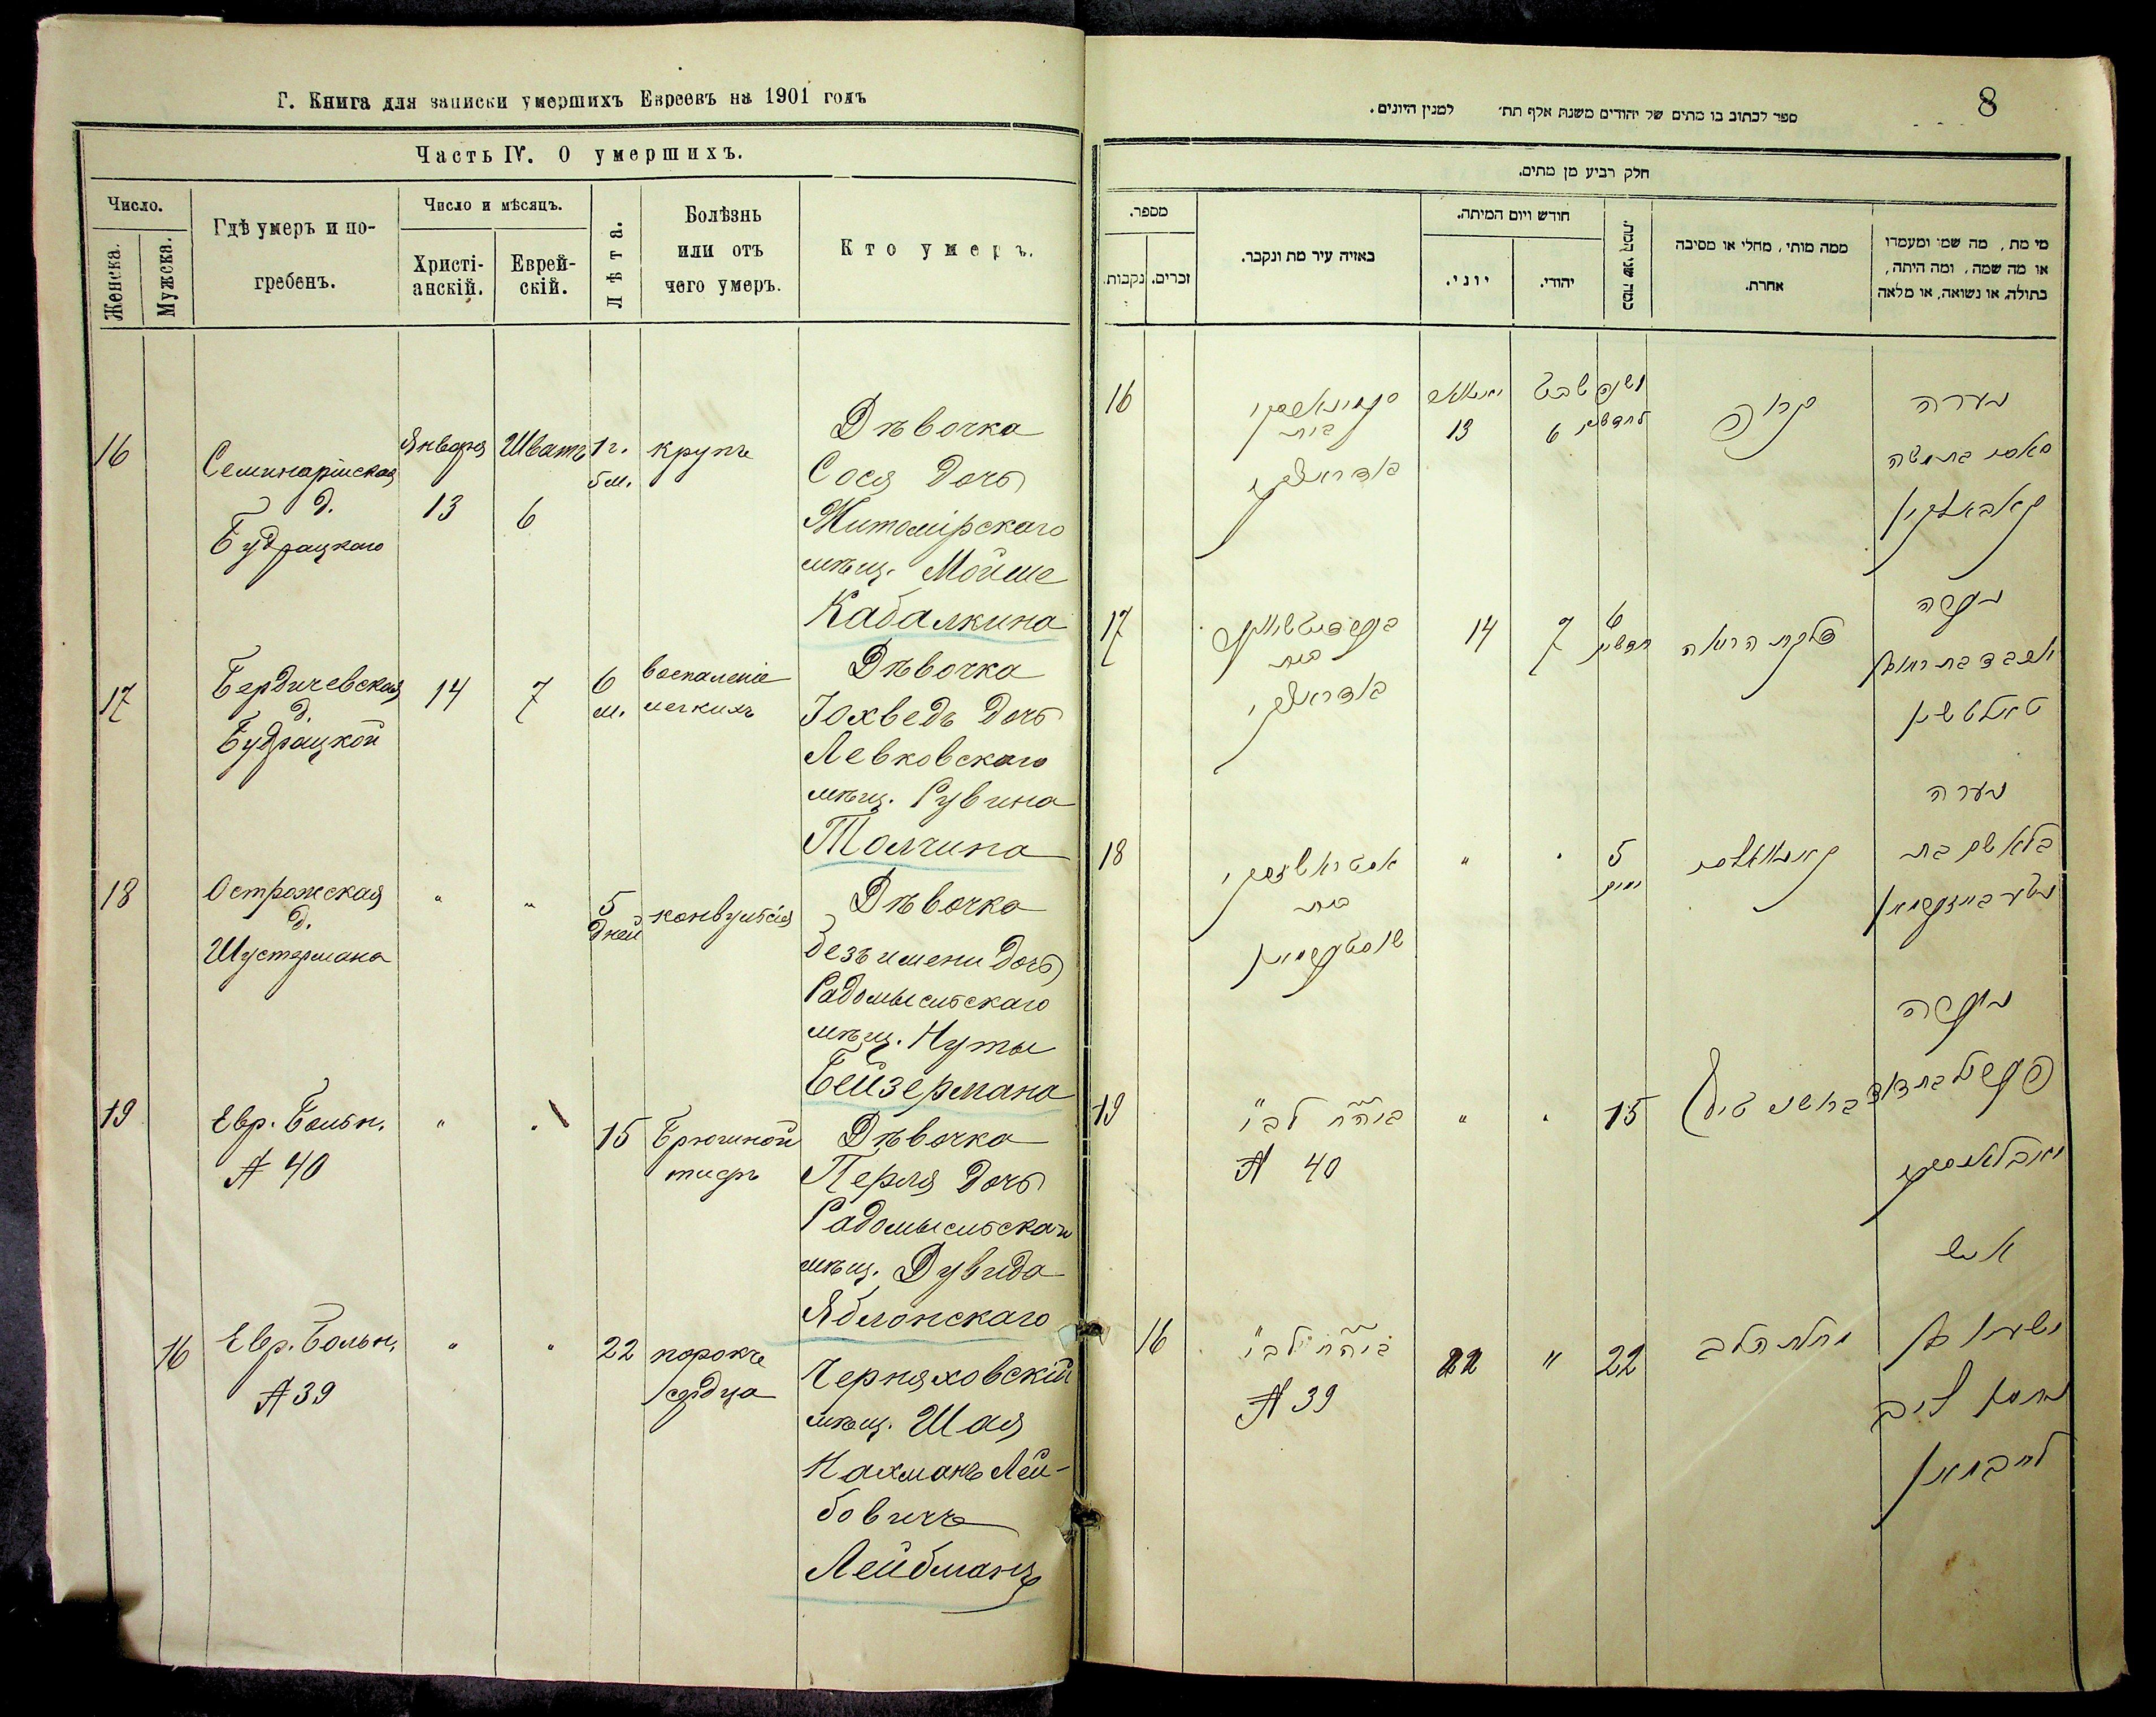 Г. Книга для записки умершихъ Евреевъ на 1901 годъ
Часть IV. О умершихъ.
Число.
Женска.
Мужска.
Гдѣ умеръ и по-
гребенъ.
Число и мѣсяцъ.
Христі-
анскій.
Еврей-
скій.
Лѣта.
Болѣзнь
или отъ
чего умеръ.
Кто умеръ.
16
Семинарійская
д.
Будрацкаго
Января
13
Шватъ
6
1 г.
5 м.
крупъ
Дѣвочка
Сося дочь
Житомірскаго
мѣщ. Мойше
Кабалкина
17
Бердичевская
д.
Будрацкой
14
7
6
м.
воспаленіе
легкихъ
Дѣвочка
Іохведъ дочь
Левковскаго
мѣщ. Рувина
Толчина
18
Острожская
д.
Шустермана
"
"
5
дней
конвульсія
Дѣвочка
безъ имени дочь
Радомысльскаго
мѣщ. Нуты
Бейзермана
19
Евр. Больн.
№ 40
"
"
15
Брюшной
тифъ
Дѣвочка
Перля дочь
Радомысльскаго
мѣщ. Дувида
Яблонскаго
16
Евр. Больн.
№ 39
"
"
22
порокъ
сердца
Черняховскій
мѣщ. Шая
Нахманъ Лей-
бовичъ
Лейбманъ
8
ספר לכתוב בו מתים של יהודים משנת אלף תת׳ למנין היונים.
חלק רביע מן מתים.
מספר.
נקבות.
זכרים.
באיזה עיר מת ונקבר.
חודש ויום המיתה.
יוני.
יהודי.
כמה שני המת.
ממה מותי, מחלי או מסיבה
אחרת.
מי מת, מה שמו ומעמדו
או מה שמה, ומה היתה,
בתולה, או נשואה, או מלאה
16
בית
13
שבט
6
קרופ
נערה
קאבאלקין
17
בית
14
7
6
חדשים
דלקת הריאה
טאלטשין
18
בית
שוסטערמאן
"
"
5
ימים
נערה
19
№ 40
"
"
15
פערל בת דוד
יאבלאנסקי
16
№ 39
22
"
22
איש
נחמן ליב
לייבמאן